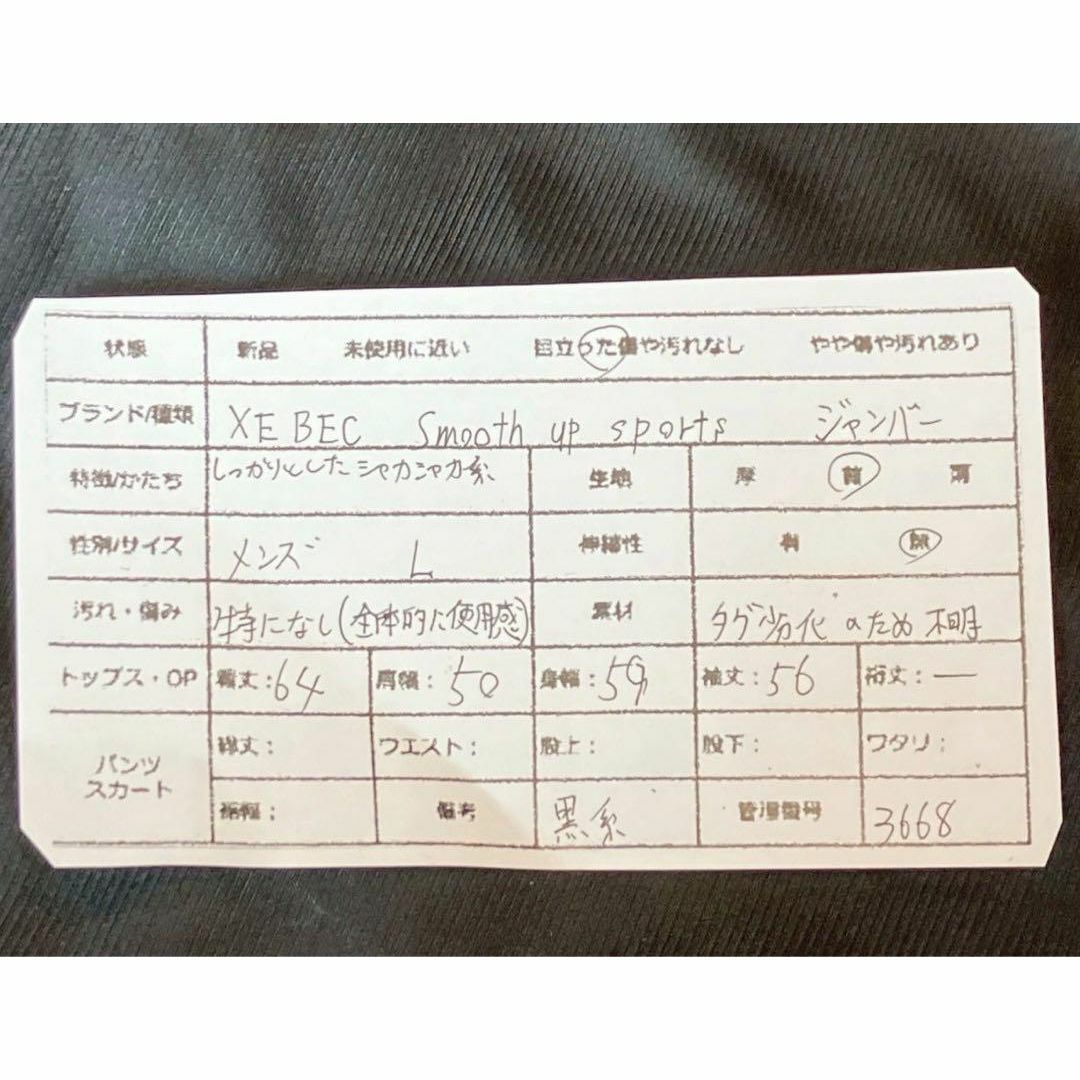 状態 新品 未使用に近い 目立った傷や汚れなし やや傷や汚れあり
ブランド/種類 XEBEC Smooth up sports ジャンバー
特徴/かたち しっかりとした シャカシャカ系 生地 厚 普 薄
性別/サイズ メンズ L 伸縮性 有 無
汚れ・傷み 特になし(全体的に使用感) 素材 タグ劣化のため不明
トップス・OP 着丈:64 肩幅:50 身幅:59 袖丈:56 裄丈:ー
パンツ スカート 総丈: ウエスト: 股上: 股下: ワタリ:
裾幅: 備考 黒系 管理番号 3668